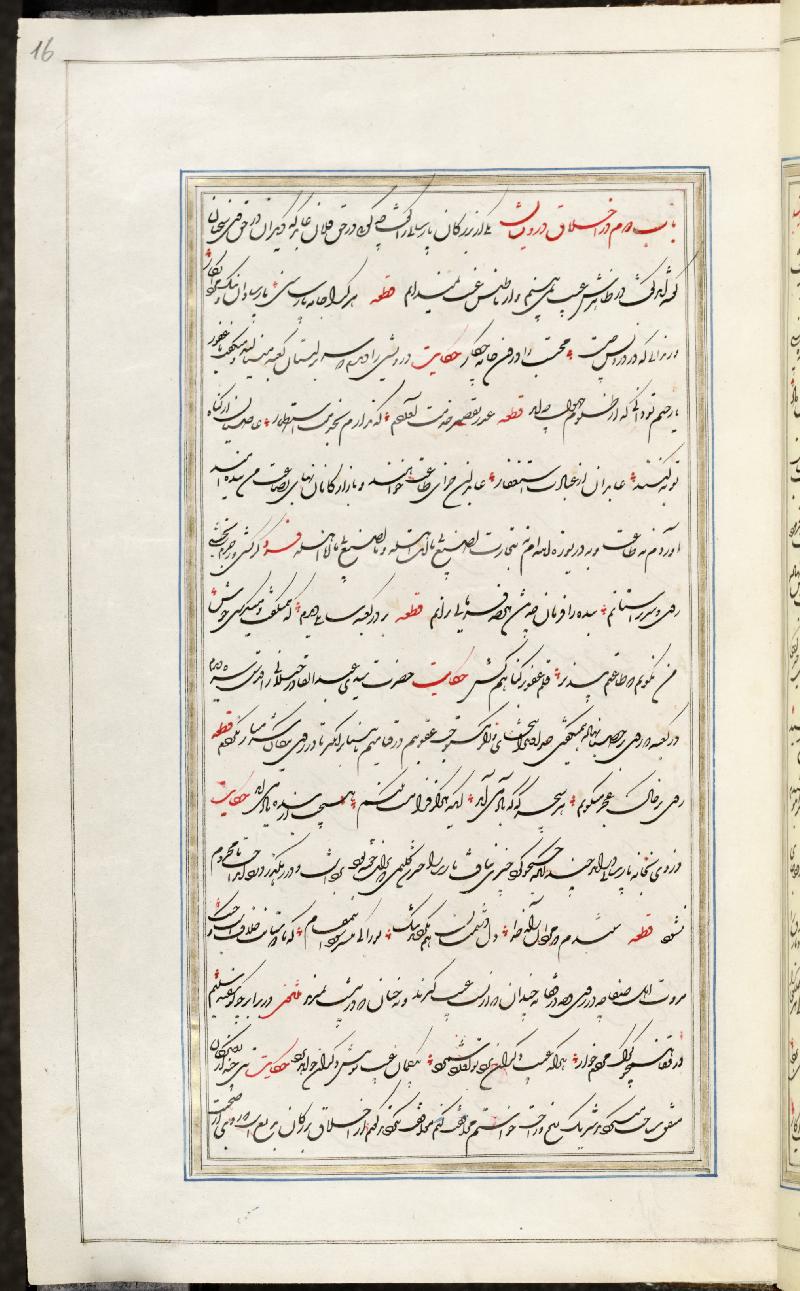 باب دوم در اخلاق درویشان یکی از بزرگان پارسایی را گفت چه گویی در حق فلان عابد که دیگران در حق وی سخنان
گفته‌اند گفت در ظاهرش عیب نمی‌بینم و از باطنش غیب نمیدانم قطعه هر کرا جامه پارسا بینی پارسا دان و نیک مرد انگار
ور ندانی که در نهانش چیست محتسب را درون خانه چکار حکایت درویشی را دیدم سر بر آستان کعبه میمالید و میگفت یا غفور
یا رحیم تو دانی که از ظلوم جهول چه آید قطعه عذر تقصیر خدمت آوردم که ندارم بطاعت استظهار عاصیان از گناه
توبه کنند عارفان از عبادت استغفار عابدان جزای طاعت خواهند و بازارگانان بهای بضاعت من بنده امید
آورده‌ام نه طاعت و بدریوزه آمده‌ام نه بتجارت اصنع بی ما انت اهله و لا تصنع بی ما انا اهله فرد گر کشی ور جرم بخشی
روی و سر بر آستانم بنده را فرمان نباشد هر چه فرمایی برانم قطعه بر در کعبه سائلی دیدم که همیگفت و میگرستی خوش
من نگویم که طاعتم بپذیر قلم عفو بر گناهم کش حکایت حضرت سیدی عبدالقادر جیلانی را قدس سره دیدم
در کعبه که روی بر حصبا نهاده همیگفت خداوندا ببخشای و اگر مستوجب عقوبتم در قیامتم نابینا برانگیز تا در روی نیکان شرمسار نگردم قطعه
روی بر خاک عجز میگویم هر سحرگه که باد می آید ایکه هرگز فرامشت نکنم هیچت از بنده یاد می آید حکایت
دزدی بخانه پارسایی درآمد چندانکه جستجو کرد چیزی نیافت پارسا را خبر شد گلیمی که بر آن خفته بود برداشت و در رهگذر دزد انداخت تا محروم
نشود قطعه شنیدم که مردان راه خدا دل دشمنان هم نکردند تنگ ترا کی میسر شود این مقام که با دوستانت خلافست و جنگ
مودت اهل صفا چه در روی و چه در قفا نه چنان که از پست عیب گیرند و پیشت میرند مثنوی در برابر چو گوسفند سلیم
در قفا همچو گرگ مردم خوار هر که عیب دگران پیش تو آورد و شمرد بیگمان عیب تو پیش دگران خواهد برد حکایت تنی چند از روندگان
متفق سیاحت بودند و شریک رنج و راحت خواستم موافقت کنم موافقت نکردند گفتم از اخلاق بزرگان بدیع است روی از صحبت
16